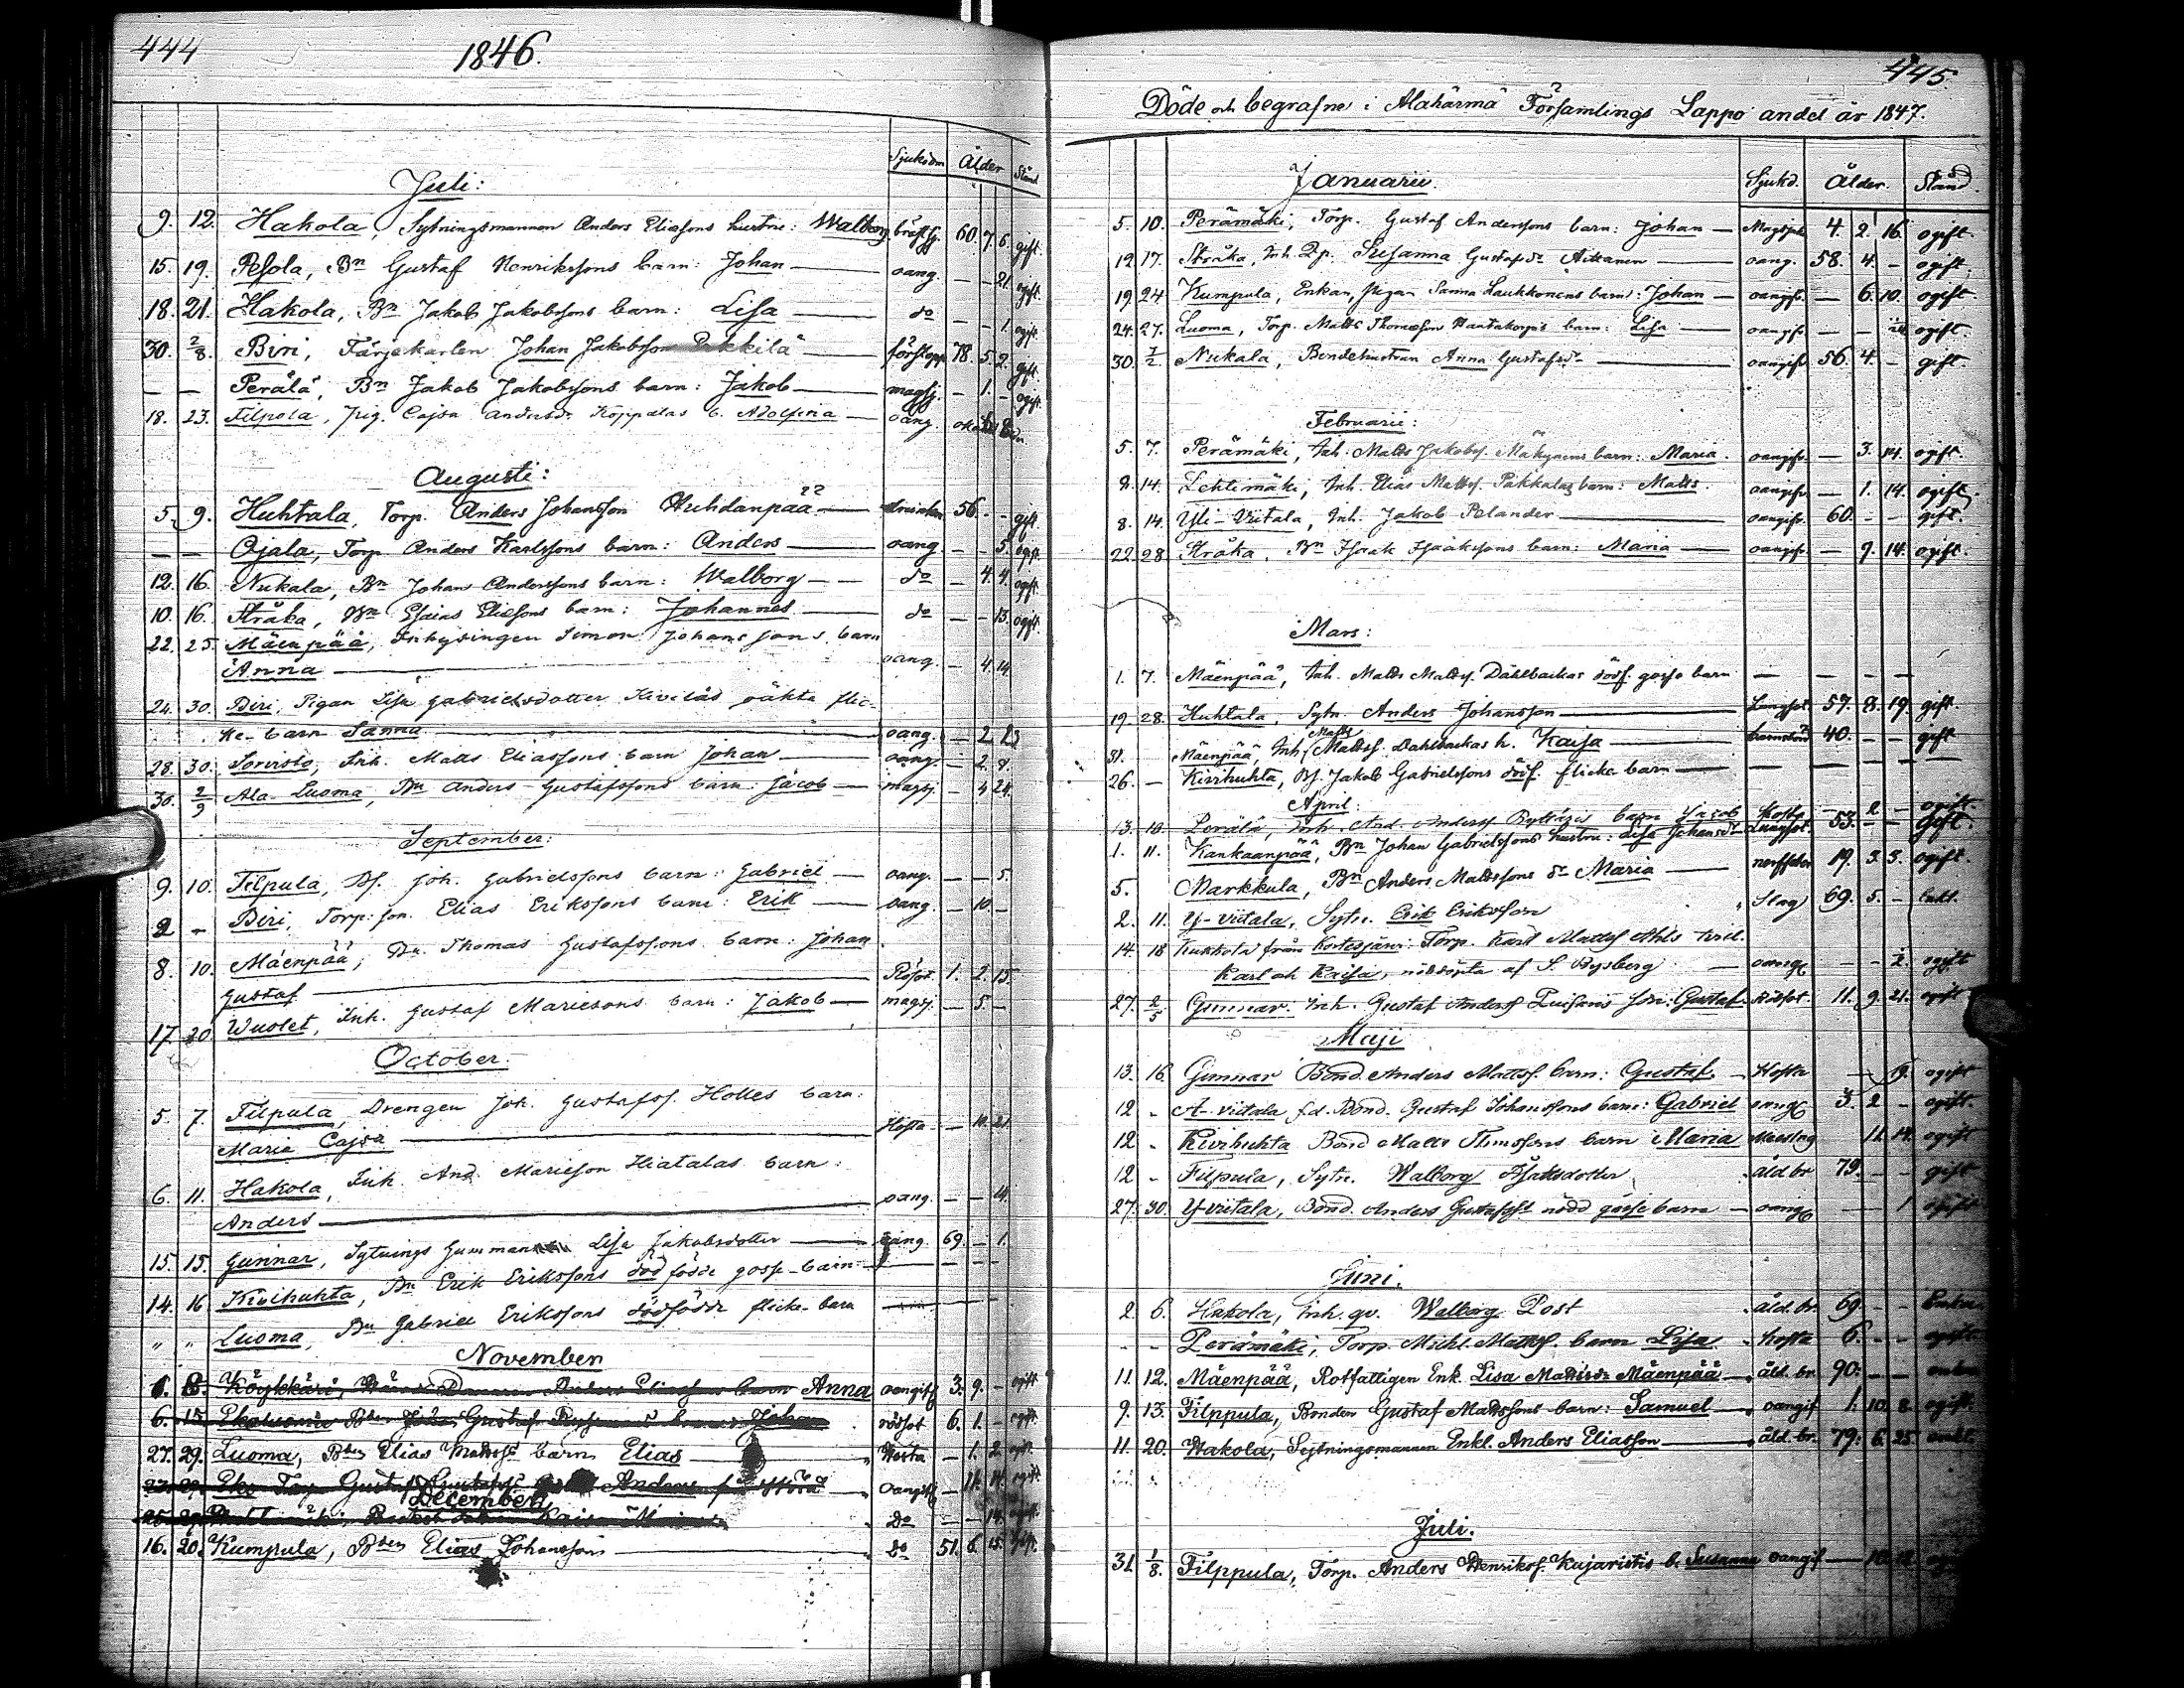 444
1846.
Sjukdom Ålder Stånd
Juli:
9. 12. Hakola, Sytningsmannen Anders Eliæsons hustru: Walborg bröstsj. 60. 7. 6. gift.
15. 19. Pesola, Bn Gustaf Henrikssons barn: Johan — oang. — — 21. ogift.
18. 21. Hakola, Bn Jakob Jakobssons barn: Lisa — do — — 1. ogift.
30. 2/8. Biri, Färjekarlen Johan Jakobsson — förstopp. 78. 5. 2. gift.
— — Perälä, Bn Jakob Jakobssons barn: Jakob — magsj. — 1. — ogift.
18. 23. Filpola, pig. Cajsa Andersdr Koppalas b. Adolfina — oäng.
Augusti:
5. 9. Huhtala, Torp. Anders Johansson Huhdanpää — 56. - - gift.
— — Ojala, Torp. Anders Karlssons barn: Anders — oang — — 5. ogift.
12. 16. Nukala, Bn Johan Anderssons barn: Walborg — — do — 4. 4. ogift.
10. 16. Stråka, Bn Esaias Eliæsons barn: Johannes — do — — 13. ogift.
22. 25. Mäenpää, Inhysingen Simon Johanssons barn
Anna — oang. — 4. 14.
24. 30. Biri, Pigan Lisa Gabrielsdotter Kivilås oäkta flic-
ke-barn Sanna — oang. — 2. 23
28. 30. Sorvisto, Inh. Matts Eliassons barn Johan — oang. — 2. 8.
30. 2/9 Ala-Luoma, Bn Anders Gustafssons barn: Jacob — magsj. — 4 24.
September:
9. 10. Filpula, Bs. Joh. Gabrielssons barn: Gabriel — oang. — — 5.
2 - Biri, Torp: son. Elias Erikssons barn: Erik — oang. — 10. —
8. 10. Mäenpää, Bn. Thomas Gustafssons barn: Johan
Gustaf — Rösot. 1. 2. 15.
17. 20. Wuolet, Inh. Gustaf Mariesons barn: Jakob — magsj. — 5. —
October.
5. 7. Filpula, Drengen Joh. Gustafss. Holles barn:
Maria Cajsa — Hosta — 10. 21.
6. 11. Hakola, Inh. And. Marieson Hiatalas barn:
Anders — oang. — — 14.
15. 15. Gunnar, Sytnings Gumman Lisa Jakobsdotter — oang. 69. — 1.
14. 16 Kivihuhta, Bn Erik Erikssons dödfödde gosse-barn — — — —
" " Luoma, Bn Gabriel Erikssons dödfödde flicke-barn
November
6. 8. Köykkäri, Anders Eliassons barn Anna oangif 3. 9. - ogift
6. 15. Johan Gustaf Johan rödsot 6. 1. - ogift
27. 29. Luoma, Bden Elias Mattss barn Elias — Hosta — 1. 2. ogift.
Eko Torp. Gustaf Gustafss Anders oangif — 11. 14. ogift
December
25. 27. Kaisa do — — 14. ogift
16. 20. Kumpula, Bden Elias Johansson — do 51. 6. 15. gift.
445.
Döde och begrafne i Alahärmä Församlings Lappo andel år 1847.
Sjukd. Ålder. Stånd.
Januarii.
5. 10. Perämäki, Torp. Gustaf Anderssons barn: Johan — Magsjuk 4. 2. 16. ogift.
12. 17. Stråka, Inh. Qp. Susanna Gustafsdr Aittanen — oang. 58. 4. — ogift.
19. 24 Kumpula, Enkan, pigan Sanna Laukkonens barn: Johan — oangif. — 6. 10. ogift.
24. 27. Luoma, Torp. Matts Thomæson barn: Lisa — oangif — — ogift.
30. 7/2 Nukala, Bondehustrun Anna Gustafsdr — oangif 56. 4. — gift.
Februarii:
5. 7. Perämäki, Inh. Matts Jakobss. Mäkynens barn: Maria. oangif. — 3. 14. ogift.
8. 14. Lehtimäki, Inh. Elias Mattss. Pakkalas barn: Matts. oangif. — 1. 14. ogift.
8. 14. Yli-Viitala, Inh. Jakob Pelander — oangif. 60. - - gift.
22. 28. Stråka, Bn Isaak Isaakssons barn: Maria — oangif. — 9. 14. ogift.
Mars:
1. 7. Mäenpää, Inh. Matts Mattss. Dahlbackas dödf. gosse barn — — — —
19. 28. Huhtala, Sytn. Anders Johansson — Lungsot. 57. 8. 19. gift.
31. Mäenpää, Inh. Matts Mattss. Dahlbackas h. Kaisa — barnsbörd 40. — — gift
26. — Kivihuhta, Bs. Jakob Gabrielssons dödf. flicke barn — — — —
April:
13. 18. Perälä, Inh. And. Anderss barn Jacob Hosta — 2 — ogift.
1. 11. Kankaanpää, Bn Johan Gabrielssons hustru: Lisa Johansdr Lungsot. 53. — — gift.
5. Markkula, Bn Anders Mattssons dr Maria — nerffeber 19. 3. 3. ogift.
2. 11. Y-Viitala, Sytn. Erik Eriksson " Slag 69. 5. - enkl.
14. 18 Kukkola från Kortesjärvi Torp. Karl Mattss
Karl och Kaisa, nöddöpta af S. Bysberg — oang — — 2. ogift
27. 2/5 Gunnar. Inh. Gustaf Anderss son: Gustaf. Rödsot. 11. 9. 21. ogift
Maji
13. 16. Gunnar Bond. Anders Mattss. barn: Gustaf. — Hosta — 19. ogift
12 „ A-Viitala, f.d. Bond. Gustaf Johanssons barn: Gabriel oang 3. 2 - ogift.
12 „ Kivihuhta Bond Matts Simssons barn Maria Messling 11. 14. ogift
12 „ Filpula, Sytn. Walborg — åld br 79. - - gift
27. 30. Y-Viitala, Bond. Anders Gustafss nödd gosse barn — oang — 1 ogift
Juni.
2. 6. Hakola, Inh. qv. Walborg Post åld. br. 69. - - Enka.
- - Perämäki, Torp. Michl. Mattss. barn Lisa hosta 6. - - ogift
11. 12. Mäenpää, Rotfattigen Enk. Lisa Mattsdr Mäenpää — åld. br. 90. — — enka
9. 13. Filppula, Bonden Gustaf Mattssons barn: Samuel — oangif 1. 10. 8. ogift.
11. 20. Hakola, Sytningsmannen Enkl. Anders Eliasson — åld. br. 79. 6. 25. enkl.
Juli.
31. 1/8. Filppula, Torp. Anders Henrikss. Kujaristis b. Susanna oangif — 10. 18.